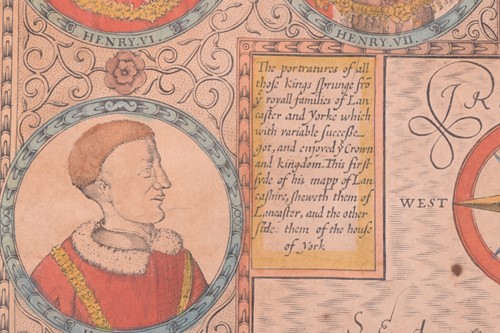 HENRY.VI.
HENRY.VII.
The portratures of all
those kings sprunge fro
ÿ royall families of Lan
caster and Yorke which
with variable successe
got, and enioyed ÿ Crown
and kingdom. This first
syde of his mapp of Lan
cashire, sheweth them of
Lancaster, and the other
side: them of the house
of York
IR
WEST